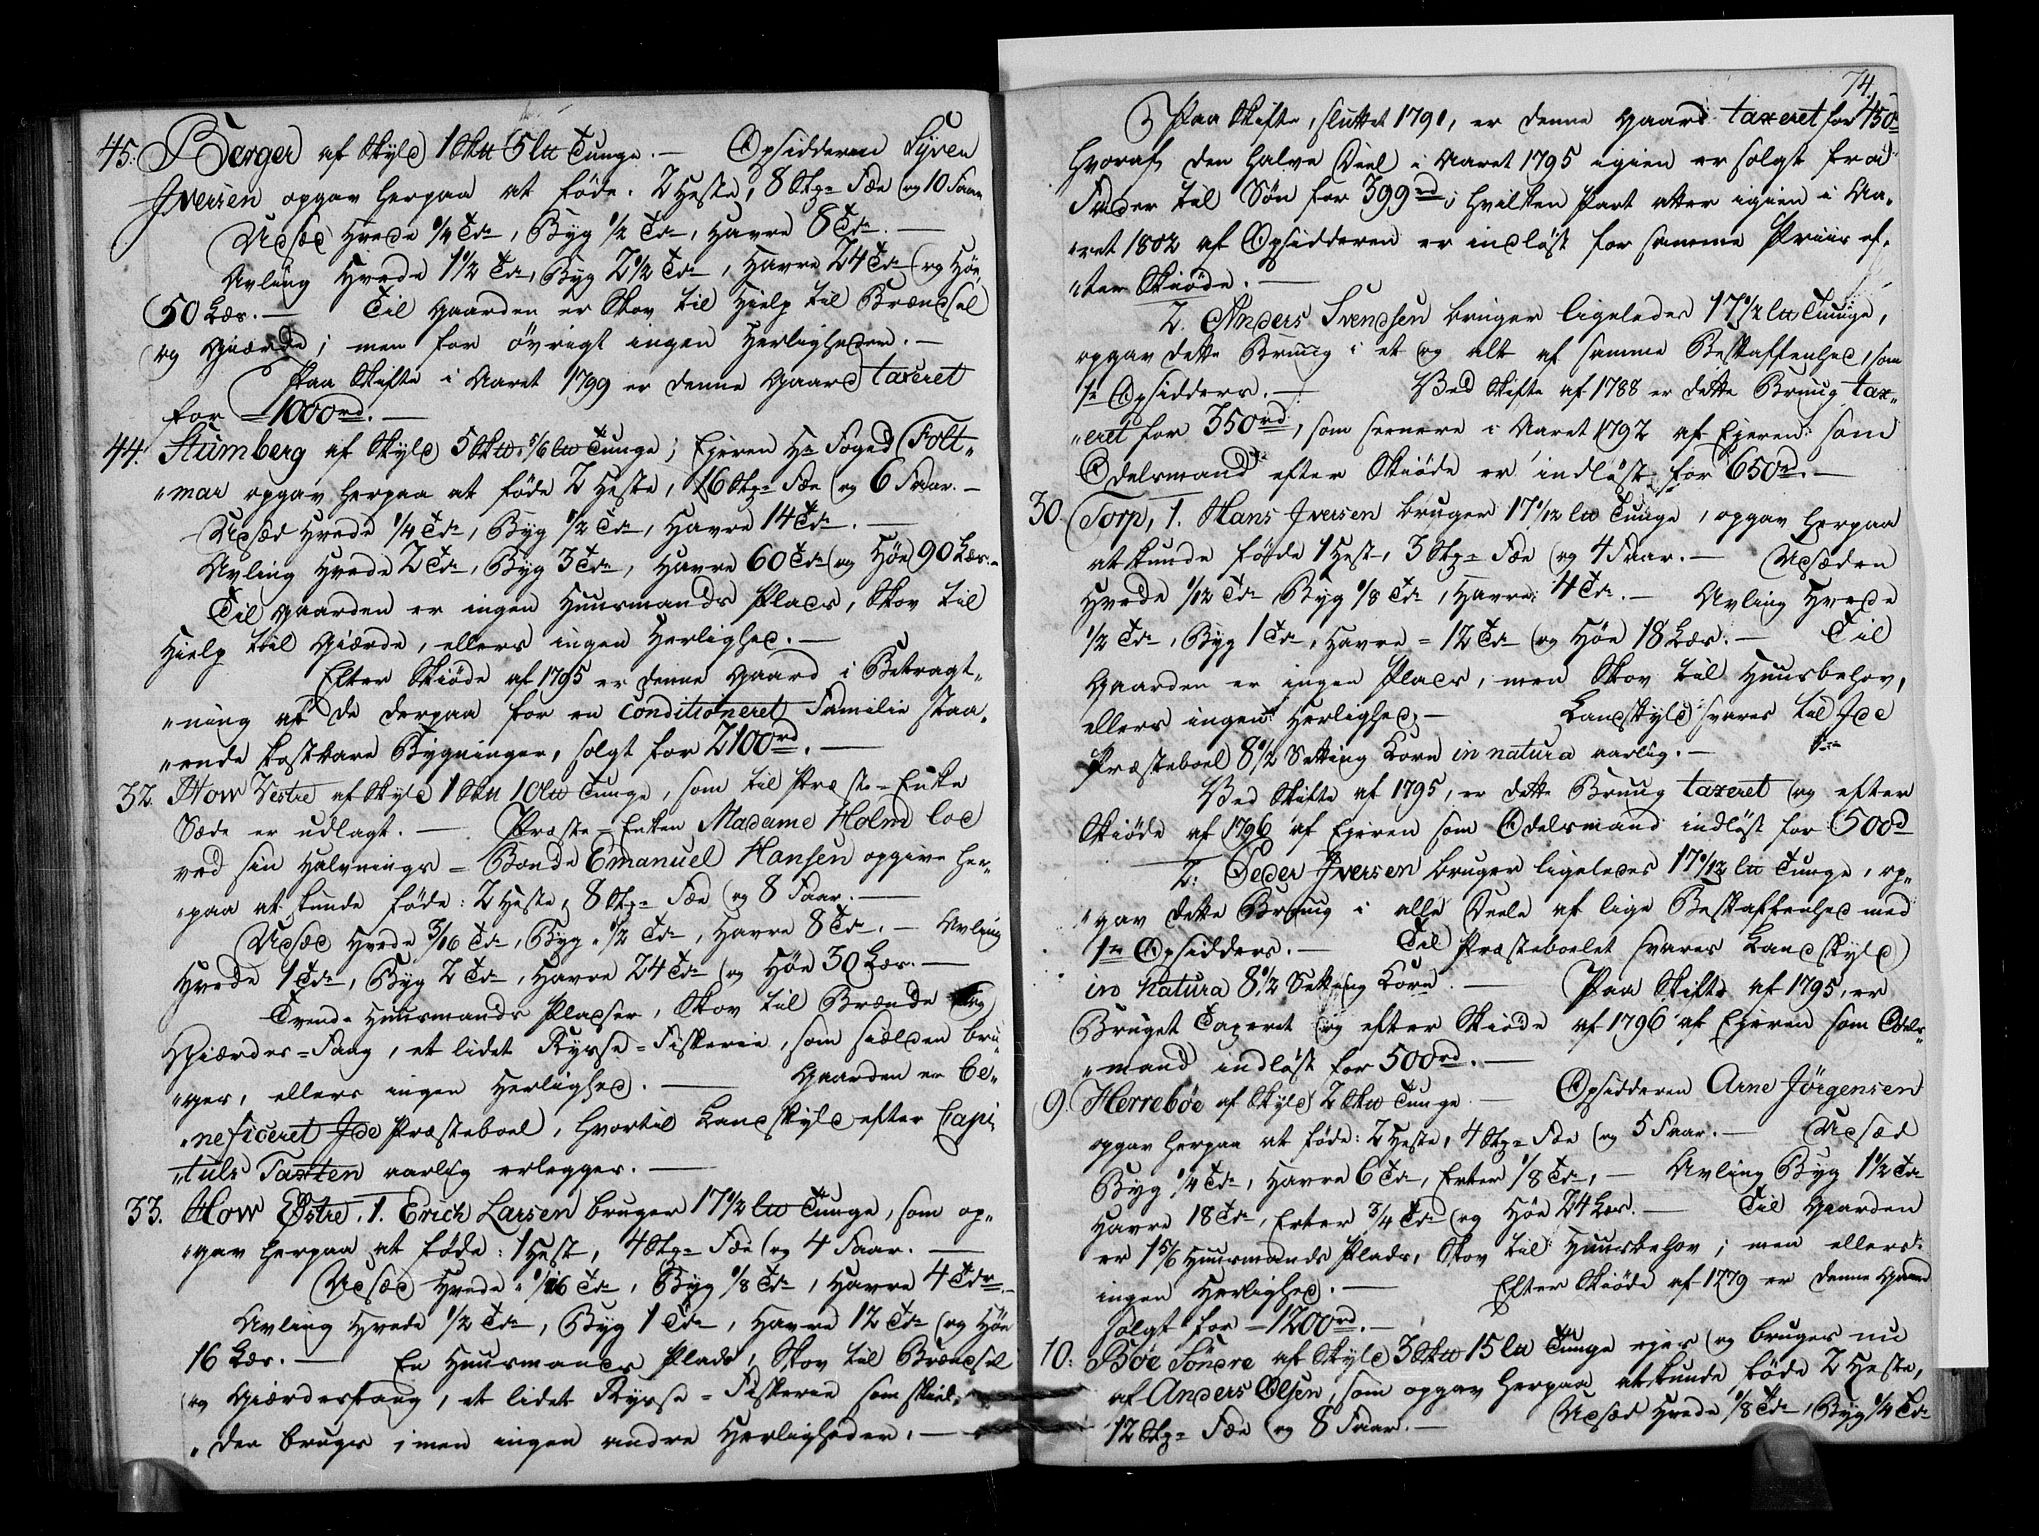 45. Berger af Skyld 1 Sk℔ 5 l℔ Tunge. — Opsidderen Syven
Iversen opgav herpaa at föde. 2 Heste, 8 Stk= Fæe og 10 Faar
Udsæd Hvede 1/4 Tdr, Byg 1/2 Tdr, Havre 8 Tdr. —
Avling Hvede 1 1/2 Tdr, Byg 2 1/2 Tdr, Havre 24 Tdr og Höe
50 Læs. — Til Gaarden er Skov til Hielp til Brændsel
og Giærde; men for övrigt ingen Herligheder. —
Paa Skifte i Aaret 1799 er denne Gaard taxeret
for =1000rd. —
44. Stumberg af Skyld 5 Sk℔ 5/6 l℔ Tunge; Ejeren Hr Foged Folt„
„mar opgav herpaa at föde 2 Heste, 16 Stk= Fæe og 6 Faar. —
Udsæd Hvede 1/4 Tdr, Byg 1/2 Tdr, Havre 14 Tdr. —
Avling Hvede 2 Tdr, Byg 3 Tdr, Havre 60 Tdr og Höe 90 Læs. —
Til Gaarden er ingen Huusmands Plads, Skov til
Hielp til Giærde, ellers ingen Herlighed. —
Efter Skiöde af 1795 er denne Gaard i Betragt„
„ning af de derpaa for en conditioneret Familie staa„
„ende kostbare Bygninger, solgt for 2100rd. —
32. How Vestre af Skyld 1 Sk℔ 10 l℔ Tunge, som til Præste=Enke
Sæde er udlagt. — Præste=Enken Madame Holm lod
ved sin Halvnings=Bonde Emanuel Hansen opgive her„
„paa at kunde föde: 2 Heste, 8 Stk= Fæe og 8 Faar. —
Udsæd Hvede 3/16 Tdr, Byg 1/2 Tdr, Havre 8 Tdr. — Avling
Hvede 1 Tdr, Byg 2 Tdr, Havre 24 Tdr og Höe 30 Læs. —
Tvende Huusmands Pladser, Skov til Brænde og
Giærdes=Fang, et lidet Ryrse=Fiskerie, som sielden bru„
„ges, ellers ingen Herlighed. — Gaarden er be„
„neficeret Ide Præsteboel, hvortil Landskyld efter Capi„
„tuls Taxten aarlig erlegges. —
33. How Östre, 1. Erich Larsen bruger 17 1/2 l℔ Tunge, som op„
„gav herpaa at föde: 1 Hest, 4 Stk= Fæe og 4 Faar. —
Udsæd Hvede 1/16 Tdr, Byg 1/8 Tdr, Havre 4 Tdr. —
Avling Hvede 1/2 Tdr, Byg 1 Tdr, Havre 12 Tdr og Höe
16 Læs. — En Huusmands Plads, Skov til Brændsel
og Giærdesfang, et lidet Ryrse=Fiskerie som siel„
„den bruges; men ingen andre Herligheder. —
74.
Paa Skifte, sluttet 1791, er denne Gaard taxeret for 450rd
hvoraf den halve Deel i Aaret 1795 igien er solgt fra
Fader til Sön for 399rd; hvilken Part atter igien i Aa„
„ret 1802 af Opsidderen er indlöst for samme Priis ef„
„ter Skiöde. —
2. Anders Svendsen bruger ligeledes 17 1/2 l℔ Tunge,
opgav dette Bruug i et og alt af samme Beskaffenhed, som
1te Opsidders. — Ved Skifte af 1788 er dette Bruug tax„
„eret for 350rd, som seenere i Aaret 1792 af Ejeren som
Odelsmand efter Skiöde er indlöst for 650rd. —
30. Torp, 1. Hans Iversen bruger 17 1/12 l℔ Tunge, opgav herpaa
at kunde föde 1 Hest, 3 Stk= Fæe og 4 Faar. — Udsæden
Hvede 1/12 Tdr Byg 1/8 Tdr, Havre 4 Tdr. — Avling Hvede
1/2 Tdr, Byg 1 Tdr, Havre = 12 Tdr og Höe 18 Læs. — Til
Gaarden er ingen Plads, men Skov til Huusbehov,
ellers ingen Herlighed. — Landskyld svares til Ide
Præsteboel 8 1/2 Setting Korn in natura aarlig. —
Ved Skifte af 1795, er dette Bruug taxeret og efter
Skiöde af 1796 af Ejeren som Odelsmand indlöst for 500rd
2. Peder Iversen bruger ligeledes 17 1/12 l℔ Tunge, op„
„gav dette Bruug i alle Deele af lige Beskaffenhed med
1te Opsidders. — Til Præsteboelet svares Landskyld
in natura 8 1/2 Setting Korn. — Paa Skifte af 1795, er
Bruget Taxeret og efter Skiöde af 1796 af Ejeren som Odels„
„mand indlöst for 500rd. —
9. Herreböe af Skyld 2 Sk℔ Tunge. — Opsidderen Arne Jörgensen
opgav herpaa at föde: 2 Heste, 4 Stk= Fæe og 5 Faar. — Udsæd
Byg 1/4 Tdr, Havre 6 Tdr, Erter 1/8 Tdr, — Avling Byg 1 1/2 Tdr
Havre 18 Tdr, Erter 3/4 Tdr og Höe 24 Læs. — Til Gaarden
er 1 5/6 Huusmands Plads, Skov til Huusbehov; men ellers
ingen Herlighed. — Efter Skiöde af 1779 er denne Gaard
solgt for =1200rd. —
10. Böe Söndre af Skyld 3 Sk℔ 15 l℔ Tunge ejes og bruges nu
af Anders Olsen, som opgav herpaa at kunde föde 2 Heste,
12 Stk= Fæe og 8 Faar. — Udsæd Hvede 1/8 Tdr, Byg 1/4 Tdr